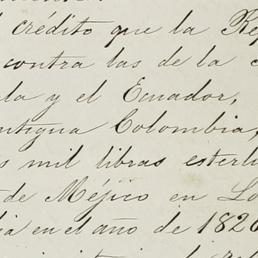 crédito que la Rep
contra las de la
la y el Ecuador,
ntigua Colombia,
s mil libras esterli
de Méjico en Lo
ia en el año de 1826